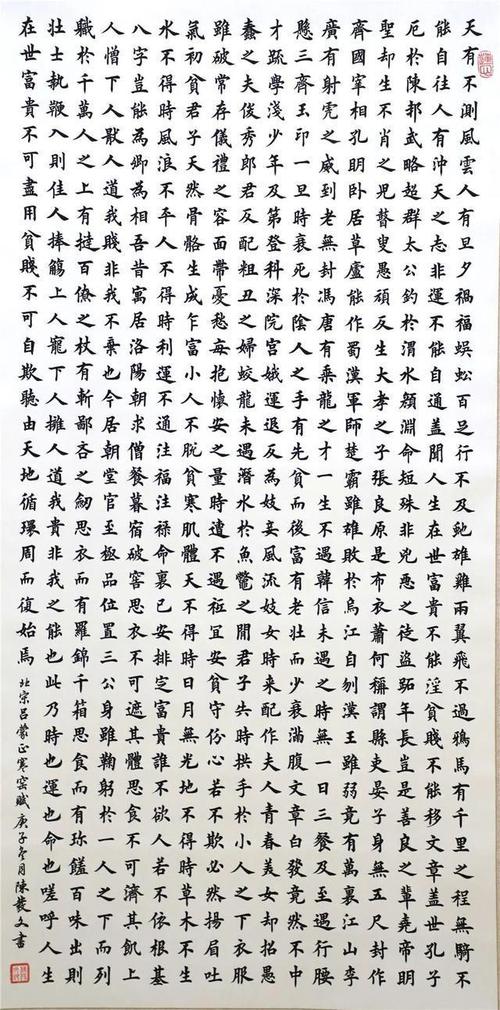 天有不測風雲人有旦夕禍福蜈蚣百足行不及虵雄雞兩翼飛不過鴉馬有千里之程無騎不
能自往人有沖天之志非運不能自通蓋聞人生在世富貴不能淫貧賤不能移文章盖世孔子
厄於陳邦武略超群太公釣於渭水顏淵命短殊非兇惡之徒盜跖年長豈是善良之輩堯帝明
聖却生不肖之児瞽叟愚頑反生大孝之子張良原是布衣蕭何稱謂縣吏晏子身無五尺封作
齊國宰相孔明卧居草廬能作蜀漢軍師楚霸雖雄敗於烏江自刎漢王雖弱竟有萬裏江山李
廣有射虎之威到老無封馮唐有乘龍之才一生不遇韓信未遇之時無一日三餐及至遇行腰
懸三齊玉印一旦時衰死於陰人之手有先貧而後富有老壯而少衰滿腹文章白發竟然不中
才疏學淺少年及第登科深院宮娥運退反為妓妾風流妓女時來配作夫人青春美女却招愚
蠢之夫俊秀郎君反配粗丑之婦蛟龍未遇潛水於魚鱉之間君子失時拱手於小人之下衣服
雖破常存儀禮之容面帶憂愁每抱懷安之量時遭不遇袛宜安貧守份心若不欺必然揚眉吐
氣初貧君子天然骨骼生成乍富小人不脫貧寒肌體天不得時日月無光地不得時草木不生
水不得時風浪不平人不得時利運不通注福注禄命裏已安排定富貴誰不欲人若不依根基
八字豈能為卿為相吾昔寓居洛陽朝求僧餐暮宿破窖思衣不可遮其體思食不可濟其飢上
人憎下人猒人道我賤非我不棄也今居朝堂官至極品位置三公身雖鞠躬於一人之下而列
職於千萬人之上有撻百僚之杖有斬鄙吝之劍思衣而有羅錦千箱思食而有珎饈百味出則
壯士執鞭入則佳人捧觴上人寵下人擁人道我貴非我之能也此乃時也運也命也嗟呼人生
在世富貴不可盡用貧賤不可自欺聽由天地循環周而復始焉
北宋呂蒙正寒窑賦庚子冬月陳發文書